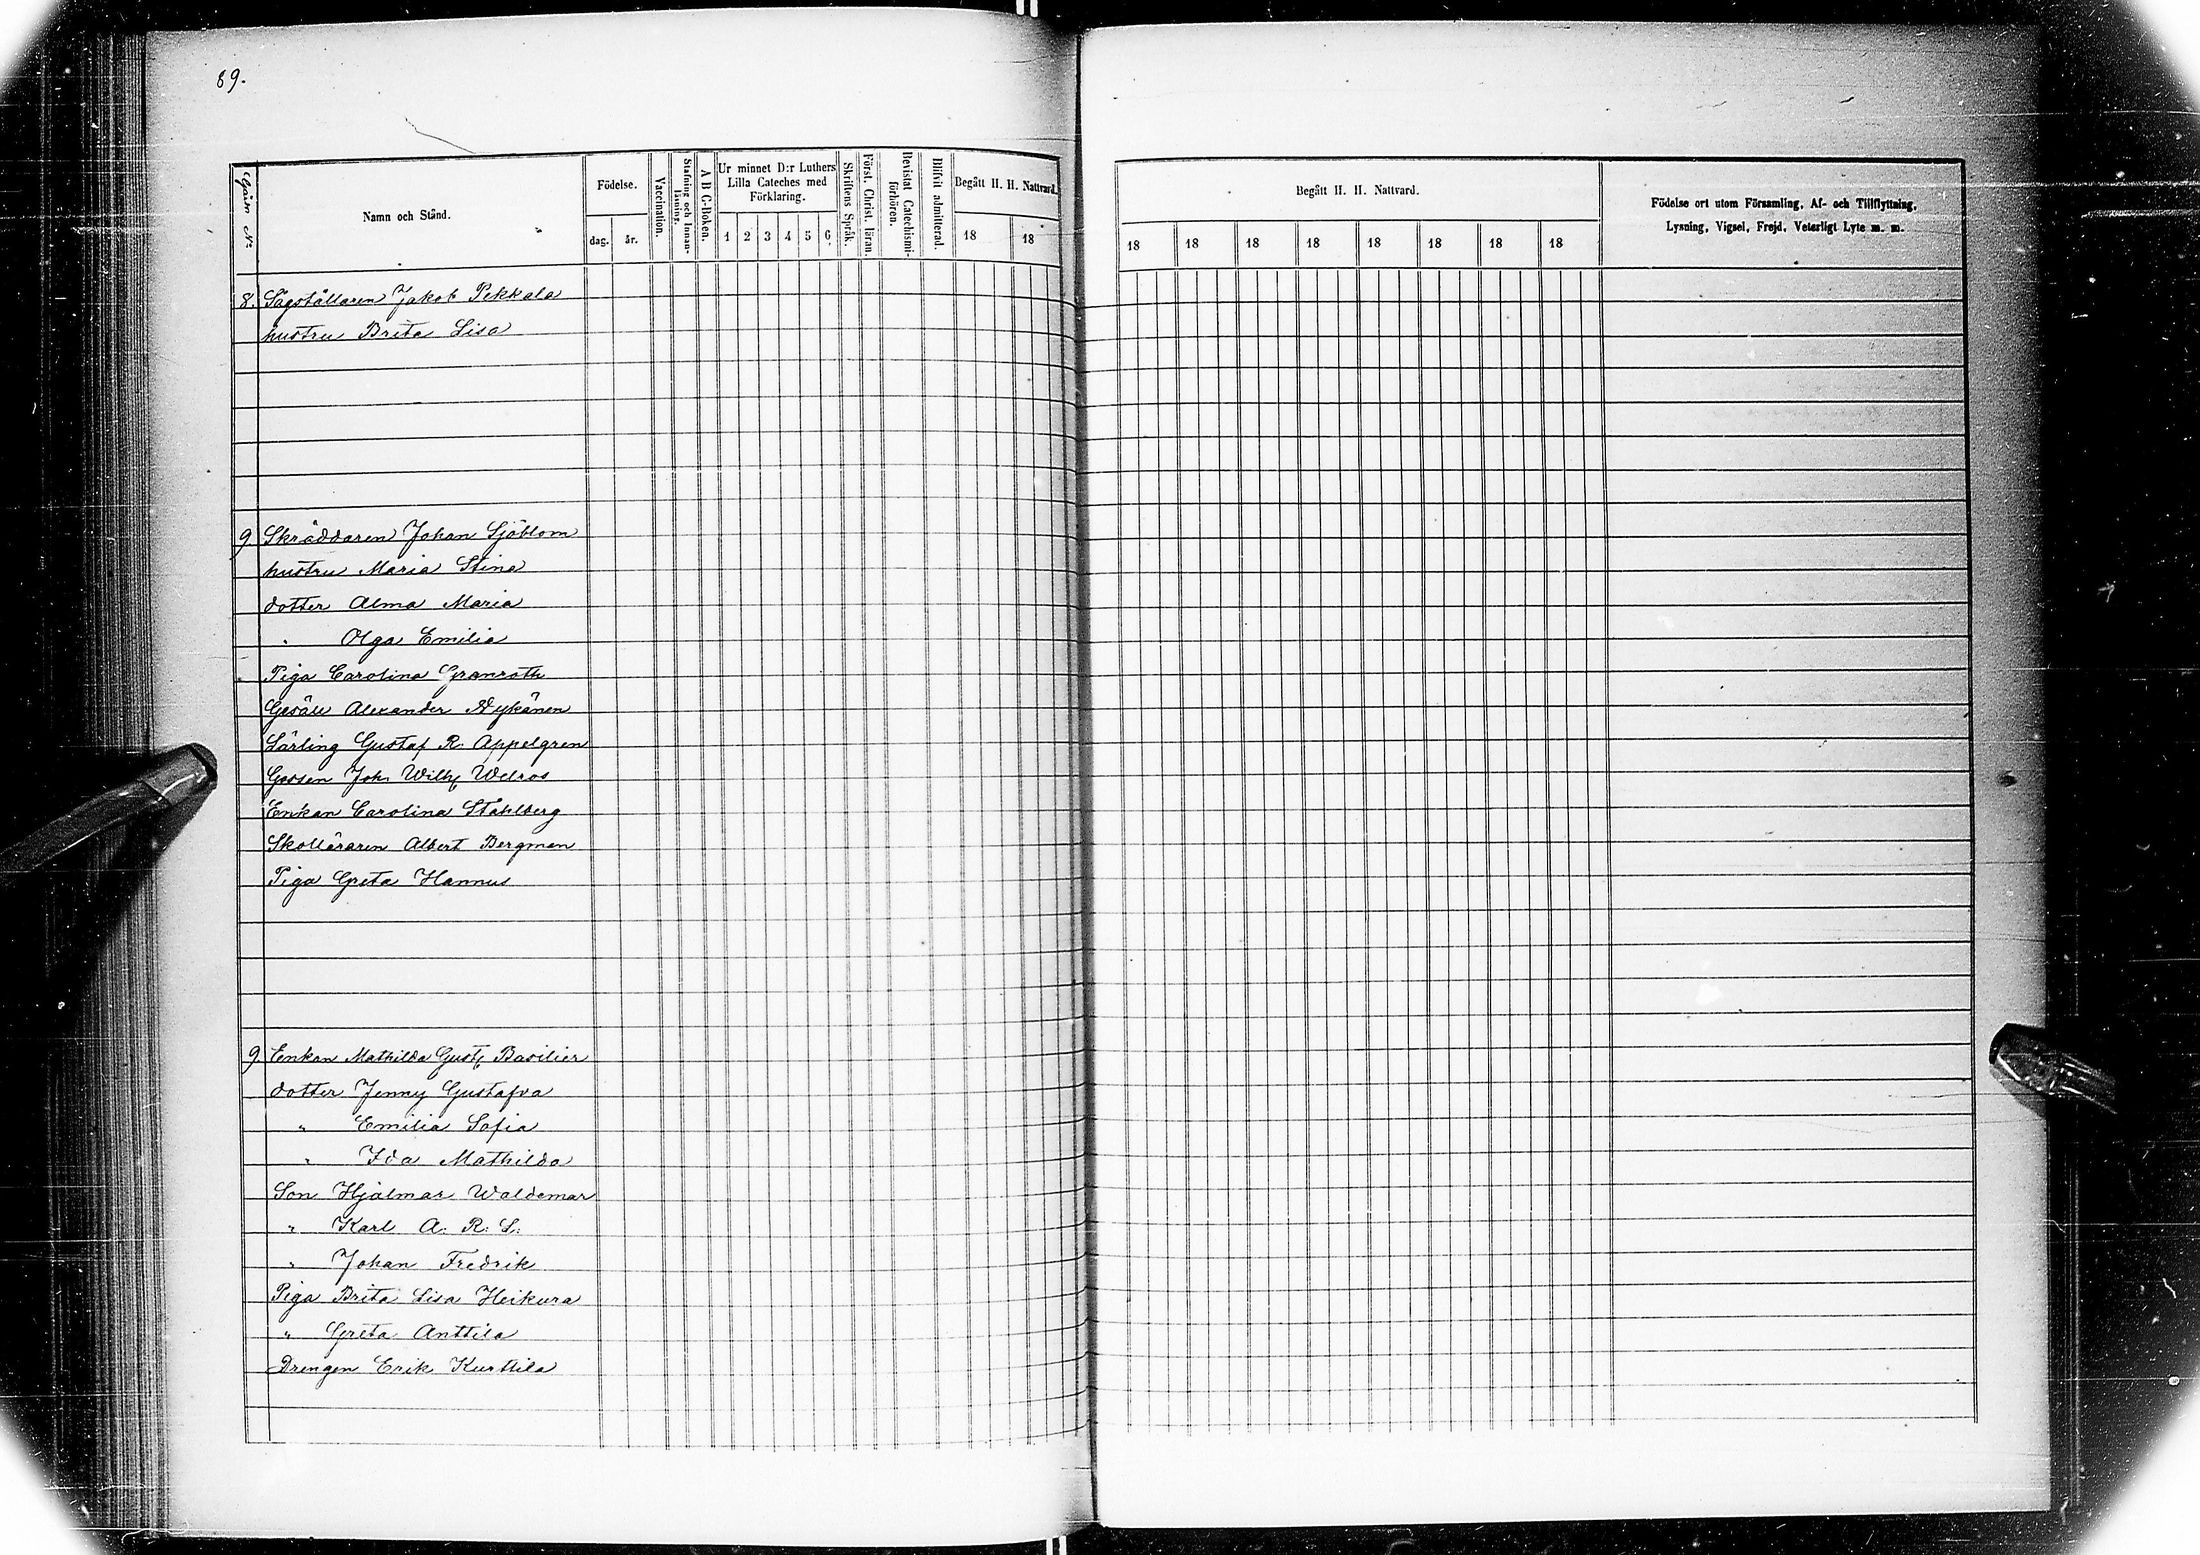 89.
Gårds No
Namn och Stånd.
Födelse.
dag.
år.
Vaccination.
Stafning och Innanläsning.
A B C-Boken.
Ur minnet D:r Luthers Lilla Cateches med Förklaring.
1 2 3 4 5 6
Skriftens Språk.
Först. Christ. läran.
Bevistat Catechismiförhören.
Blifvit admitterad.
Begått H. H. Nattvard.
18 18
Begått H. H. Nattvard.
18 18 18 18 18 18 18 18
Födelse ort utom Församling, Af- och Tillflyttning,
Lysning, Vigsel, Frejd, Veterligt Lyte m. m.
8. Sågställaren Jakob Pekkala
hustru Brita Lisa
9 Skräddaren Johan Sjöblom
hustru Maria Stina
dotter Alma Maria
" Olga Emilia
Piga Carolina Granroth
Gesäll Alexander Nykänen
Lärling Gustaf R. Appelgren
Gossen Joh. Wilh. Welros
Enkan Carolina Ståhlberg
Skolläraren Albert Bergman
Piga Greta Hannus
9 Enkan Mathilda Gustf Basilier
dotter Jenny Gustafva
" Emilia Sofia
" Ida Mathilda
Son Hjalmar Waldemar
" Karl A. R. L.
" Johan Fredrik
Piga Brita Lisa Heikura
" Greta Anttila
Drengen Erik Kurttila